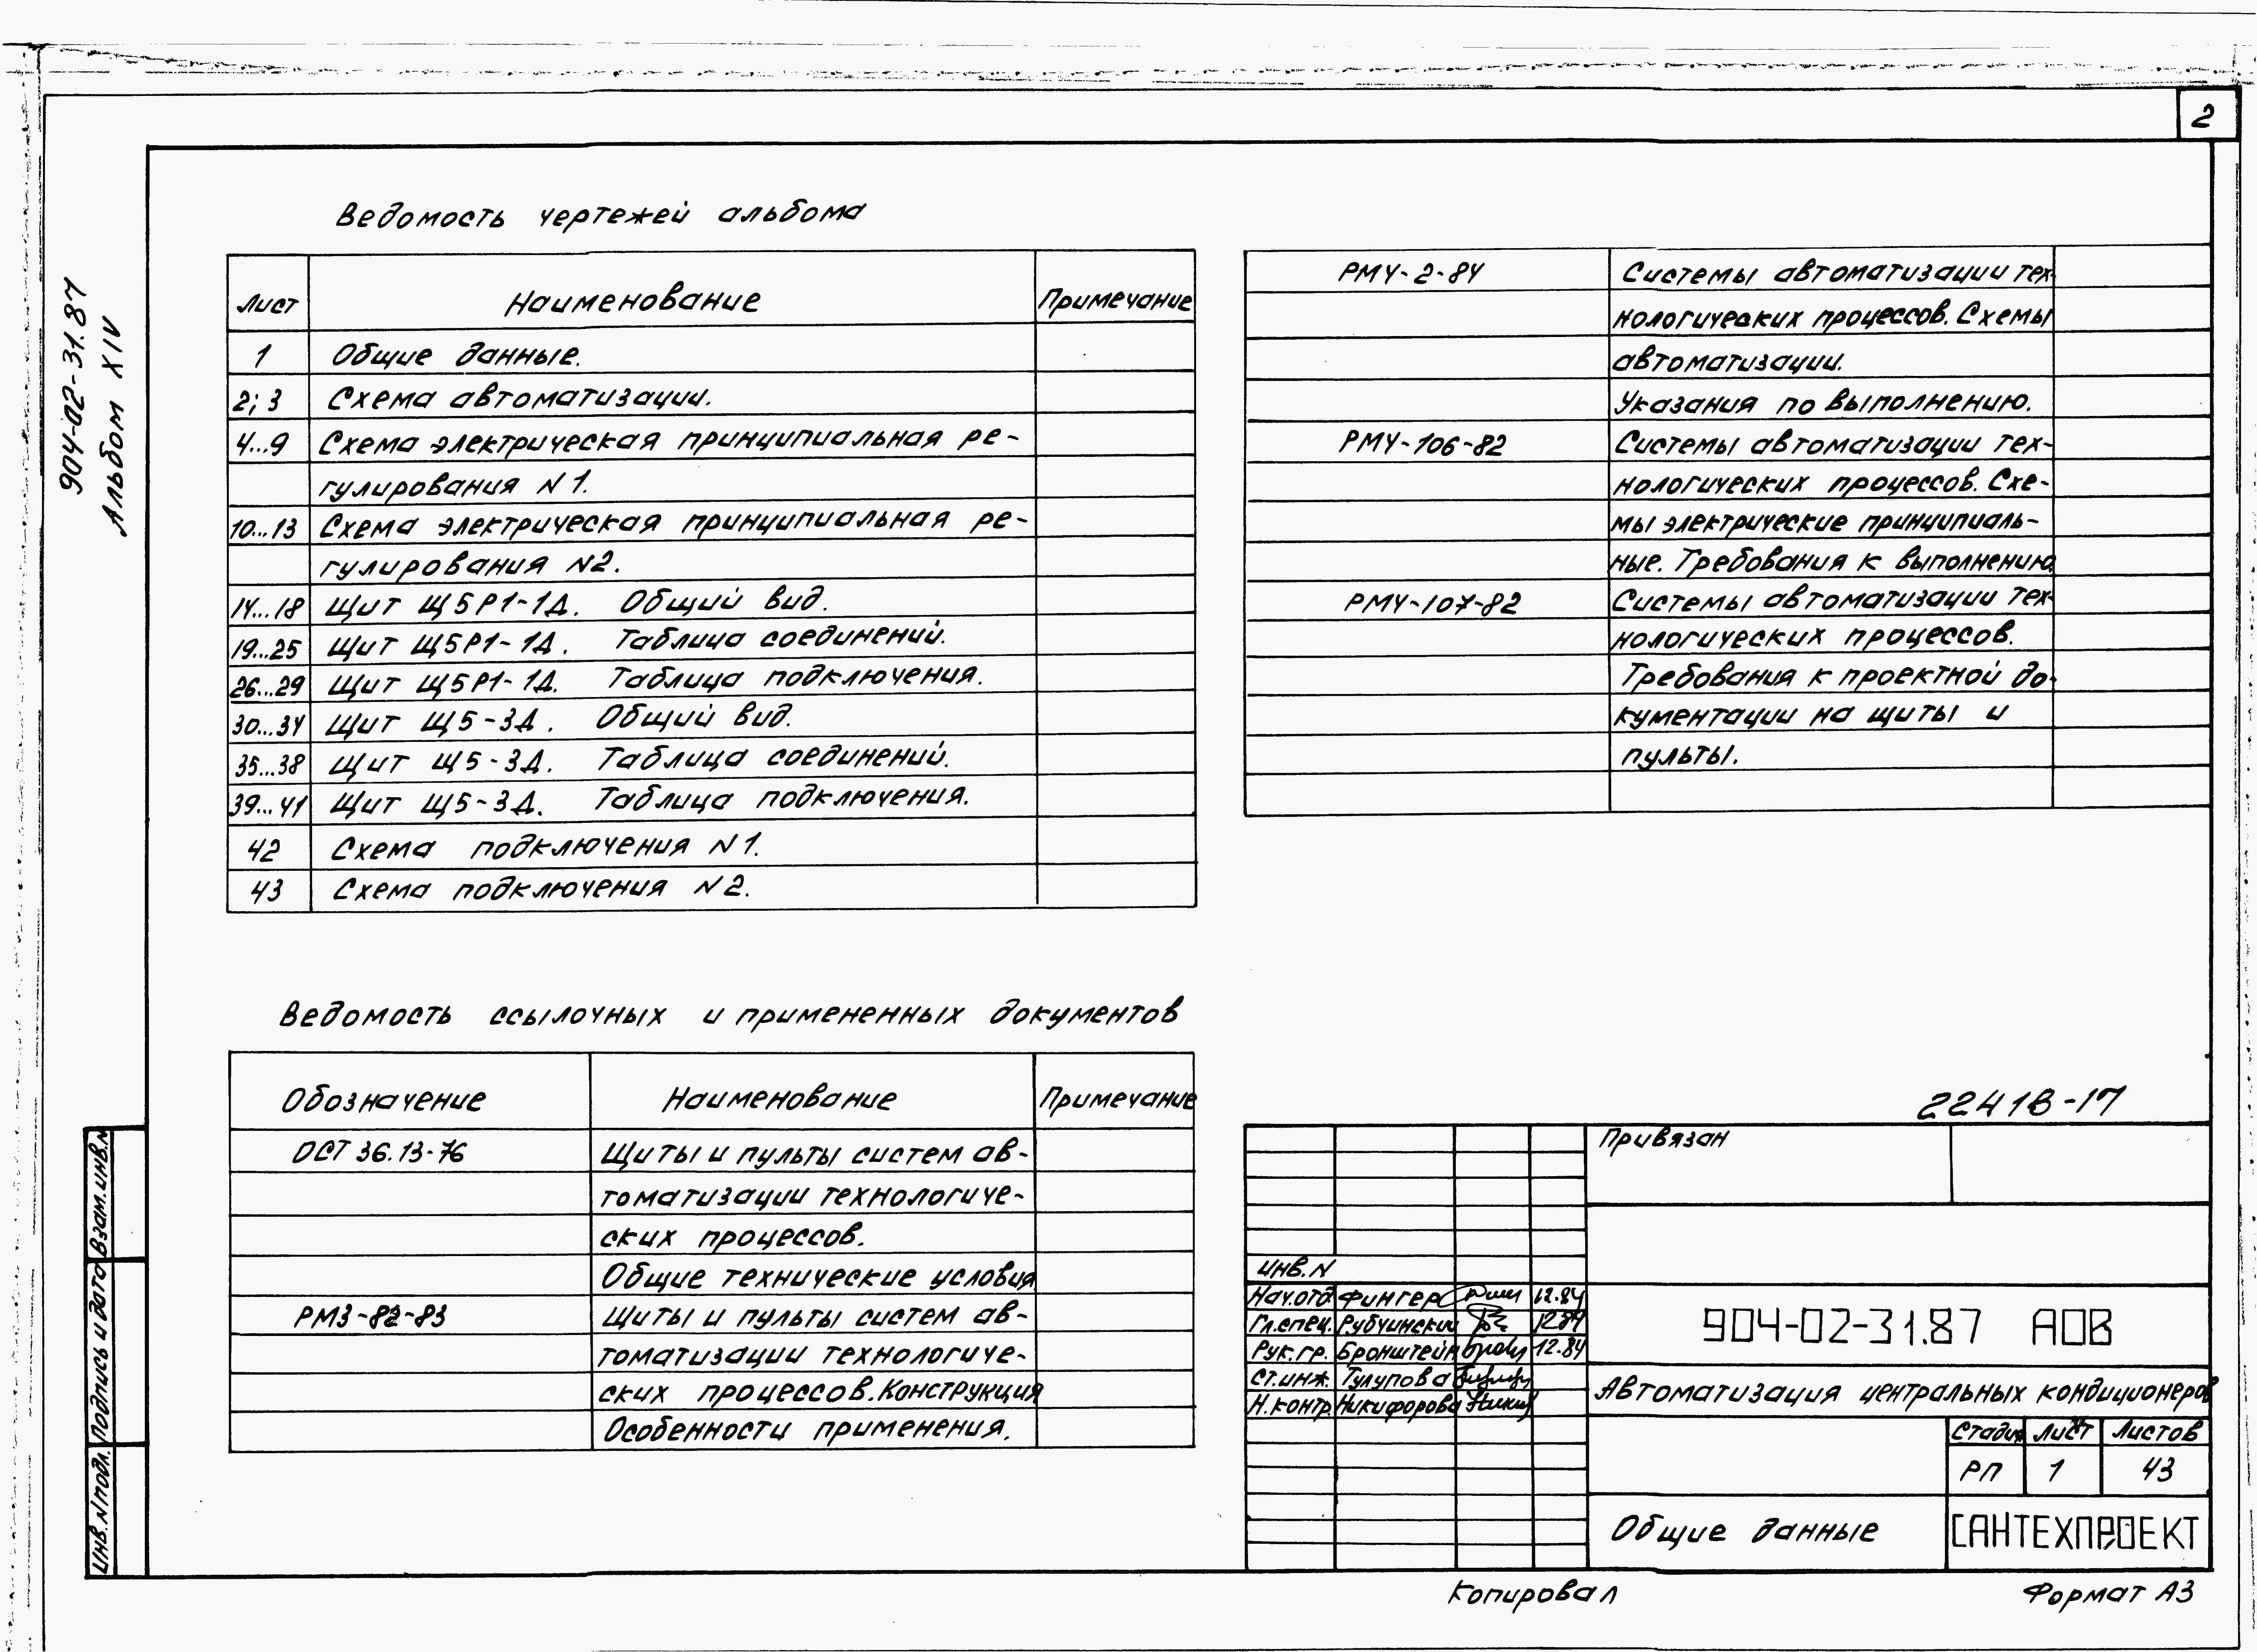 2
904-02-31.87
Альбом XIV
Ведомость чертежей альбома
Лист Наименование Примечание
1 Общие данные.
2; 3 Схема автоматизации.
4...9 Схема электрическая принципиальная ре-
гулирования N 1.
10...13 Схема электрическая принципиальная ре-
гулирования N2.
14...18 Щит Щ5Р1-1Д. Общий вид.
19...25 Щит Щ5Р1-1Д. Таблица соединений.
26...29 Щит Щ5Р1-1Д. Таблица подключения.
30...34 Щит Щ5-3Д. Общий вид.
35...38 Щит Щ5-3Д. Таблица соединений.
39...41 Щит Щ5-3Д. Таблица подключения.
42 Схема подключения N 1.
43 Схема подключения N 2.
Ведомость ссылочных и примененных документов
Обозначение Наименование Примечание
ОСТ 36.13-76 Щиты и пульты систем ав-
томатизации технологиче-
ских процессов.
Общие технические условия
РМ3-82-83 Щиты и пульты систем ав-
томатизации технологиче-
ских процессов. Конструкция
Особенности применения.
РМ4-2-84 Системы автоматизации тех-
нологических процессов. Схемы
автоматизации.
Указания по выполнению.
РМ4-106-82 Системы автоматизации тех-
нологических процессов. Схе-
мы электрические принципиаль-
ные. Требования к выполнению.
РМ4-107-82 Системы автоматизации тех-
нологических процессов.
Требования к проектной до-
кументации на щиты и
пульты.
22418-17
Привязан
Инв. N
Нач.отд Фингер 12.84
Гл.спец. Рубчинский 12.84
Рук.гр. Бронштейн 12.84
Ст.инж. Тулупова
Н.контр. Никифорова
904-02-31.87 АОВ
Автоматизация центральных кондиционеров
Стадия Лист Листов
РП 1 43
Общие данные
САНТЕХПРОЕКТ
Взам.инв.N
Подпись и дата
Инв. N подл.
Копировал
Формат А3